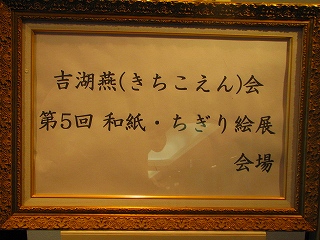 吉湖燕(きちこえん)会
第5回 和紙・ちぎり絵展
会場